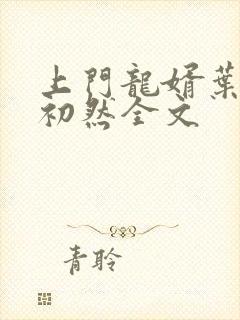 上門龍婿葉
初然全文
青聆